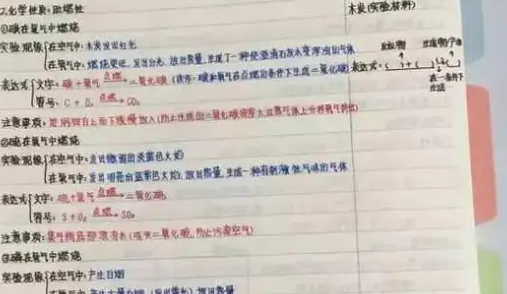 2.化学性质: 助燃性
木炭(实验材料)
①碳在氧气中燃烧
实验现象 在空气中: 木炭发出红光
反应物 生成物/产物
在氧气中: 燃烧更旺, 发出白光, 放出热量, 生成了一种使澄清石灰水变浑浊的气体
表达式 文字: 碳+氧气 点燃→ 二氧化碳 (读作: 碳和氧气在点燃的条件下生成二氧化碳) 表达式: ( )+( )→( )
符号: C + O₂ 点燃→ CO₂
在一条件下
生成
注意事项: 自上而下缓慢放入
②硫在氧气中燃烧
实验现象 在空气中: 发出微弱的淡蓝色火焰
在氧气中: 发出明亮的蓝紫色火焰, 放出热量, 生成一种有刺激性气味的气体
表达式 文字: 硫+氧气 点燃→ 二氧化硫
符号: S+O₂ 点燃→ SO₂
注意事项: 集气瓶底部放清水(吸收二氧化硫, 防止污染空气)
③磷在氧气中燃烧
实验现象 在空气中: 产生白烟